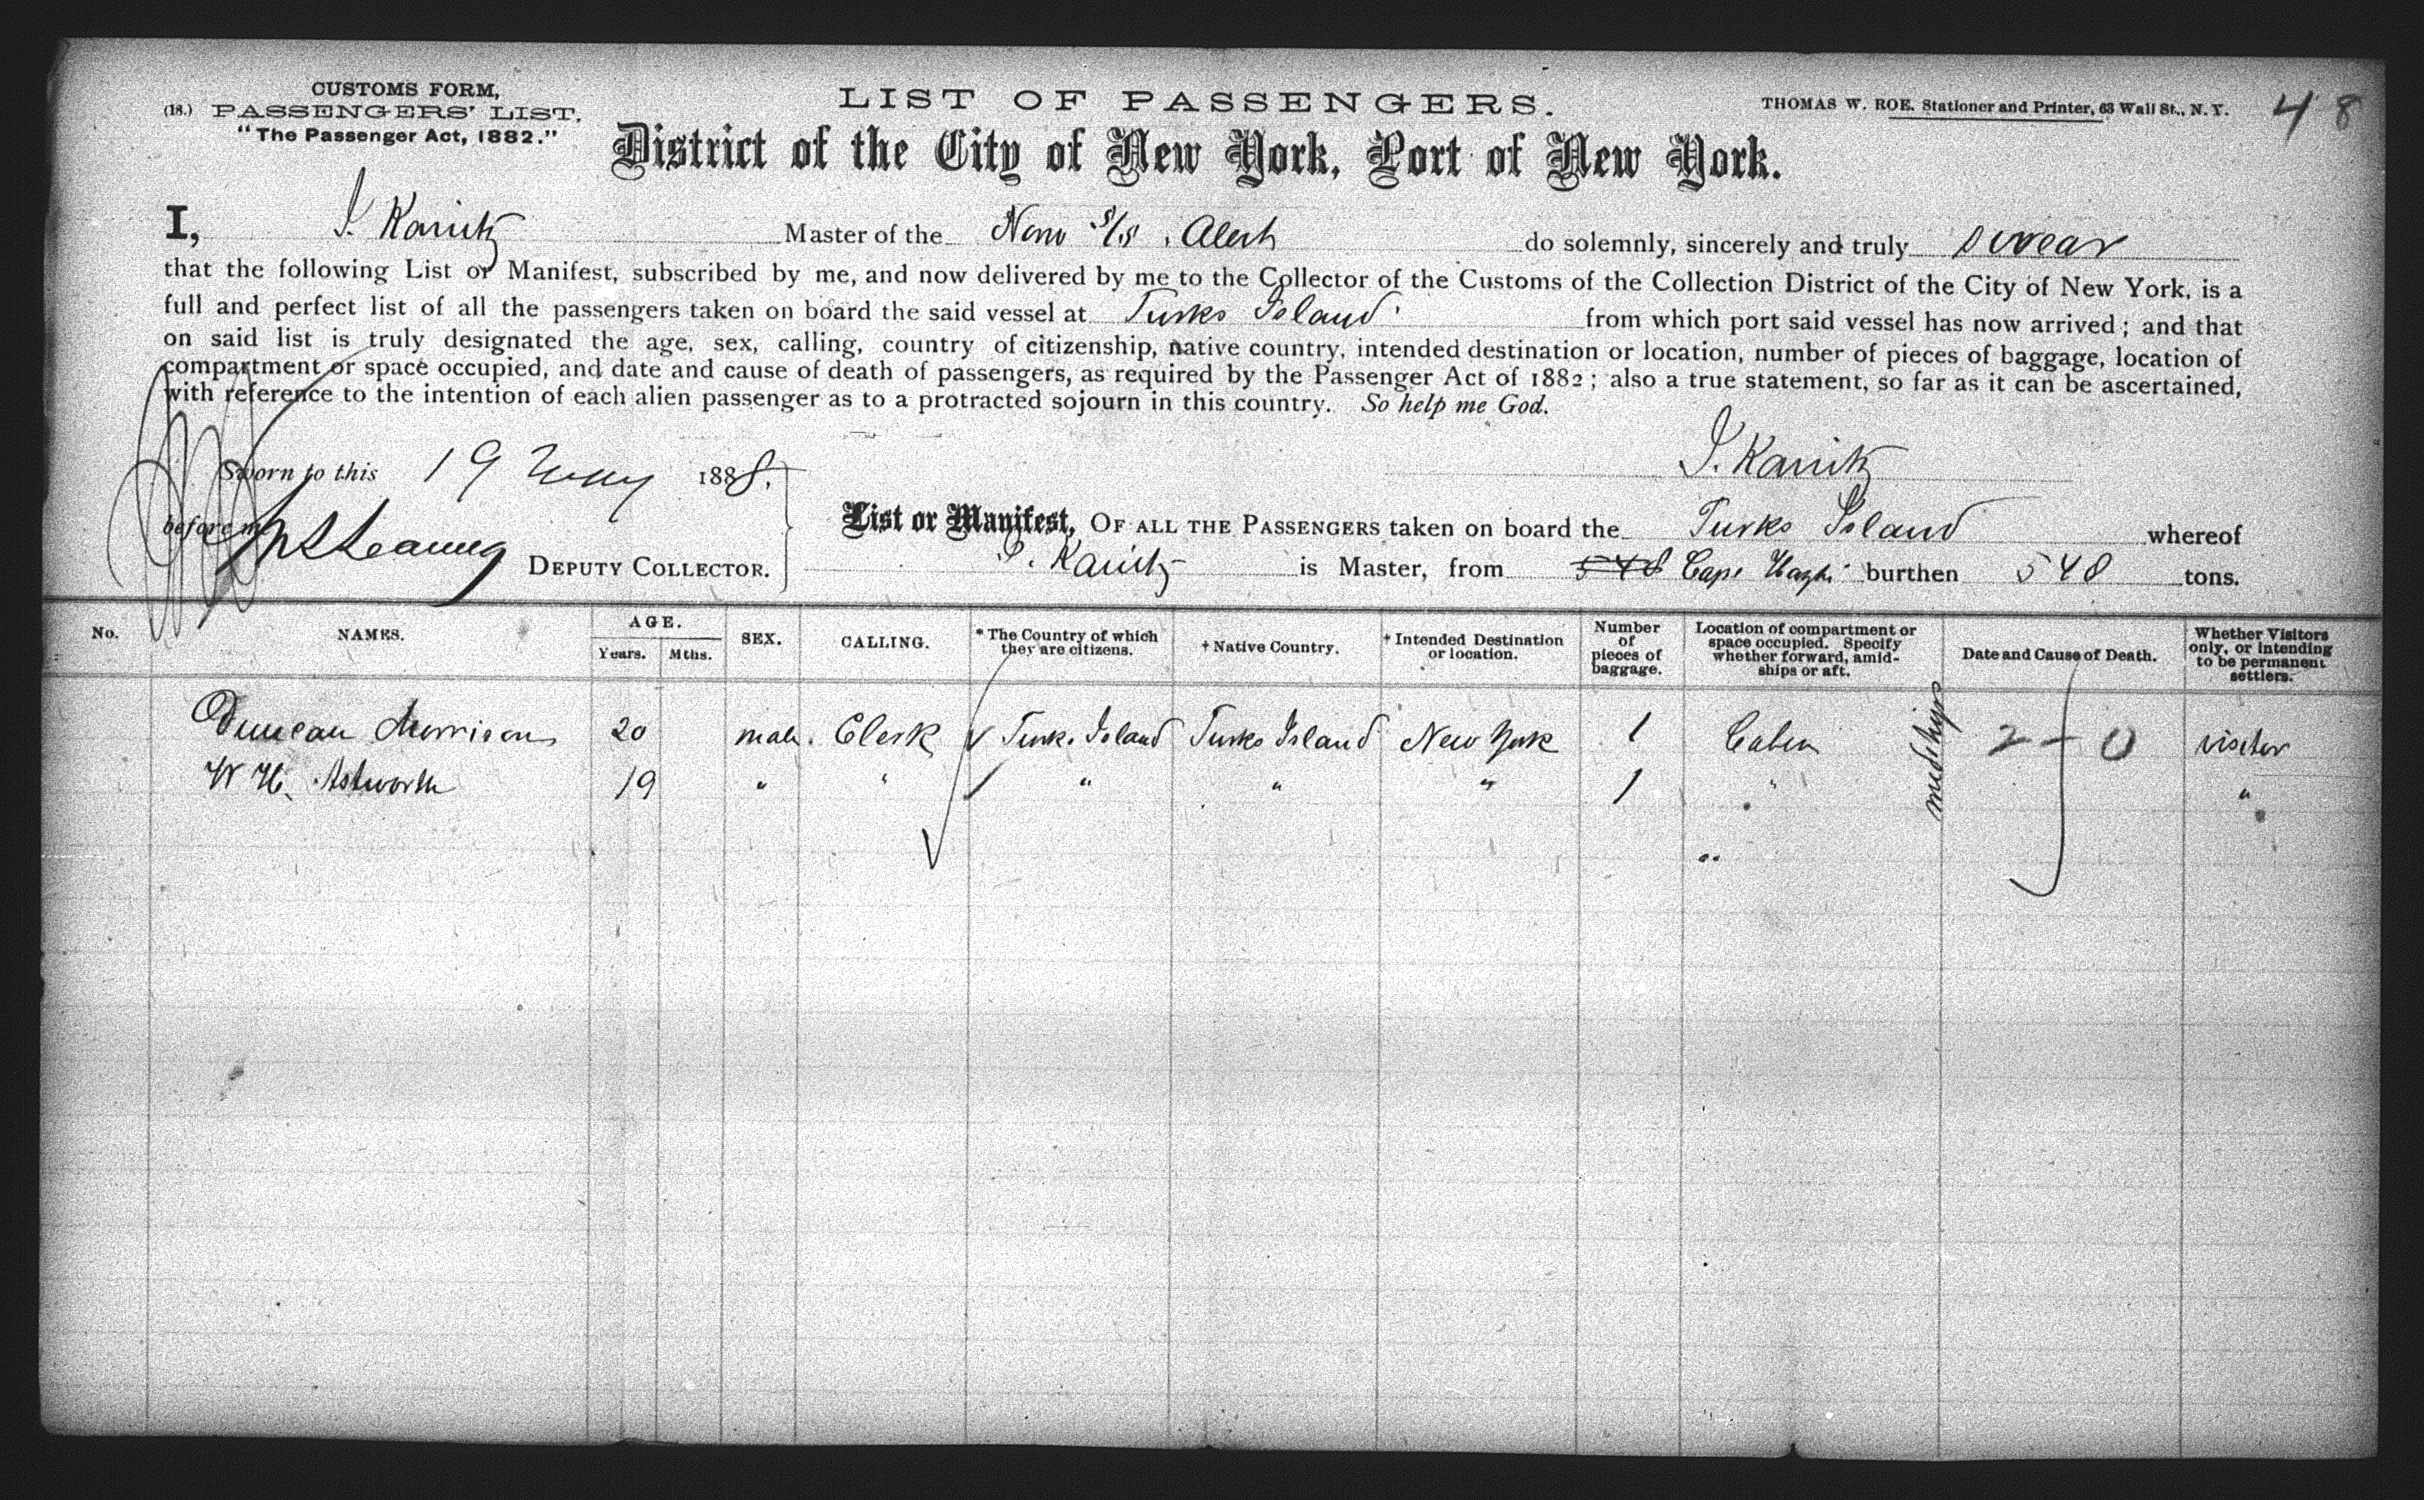 CUSTOMS FORM,
(18.) PASSENGERS' LIST.
"The Passenger Act, 1882."
LIST OF PASSENGERS.
THOMAS W. ROE, Stationer and Printer, 63 Wall St., N. Y.
48
District of the City of New York, Port of New York.
I, Master of the S/S Alert do solemnly, sincerely and truly swear
that the following List or Manifest, subscribed by me, and now delivered by me to the Collector of the Customs of the Collection District of the City of New York, is a
full and perfect list of all the passengers taken on board the said vessel at Turks Island from which port said vessel has now arrived; and that
on said list is truly designated the age, sex, calling, country of citizenship, native country, intended destination or location, number of pieces of baggage, location of
compartment or space occupied, and date and cause of death of passengers, as required by the Passenger Act of 1882; also a true statement, so far as it can be ascertained,
with reference to the intention of each alien passenger as to a protracted sojourn in this country. So help me God.
Sworn to this 19 May 1888.
before me
DEPUTY COLLECTOR.
List or Manifest, OF ALL THE PASSENGERS taken on board the Turks Island whereof
is Master, from 548 Cape burthen 548 tons.
No. NAMES. AGE. Years. Mths. SEX. CALLING. * The Country of which they are citizens. † Native Country. † Intended Destination or location. Number of pieces of baggage. Location of compartment or space occupied. Specify whether forward, amidships or aft. Date and Cause of Death. Whether Visitors only, or intending to be permanent settlers.
Duncan Morrison 20 male. Clerk Turks Island Turks Island New York 1 Cabin 2-0 visitor
W H. Ashworth 19 " " " " " 1 " "
midships